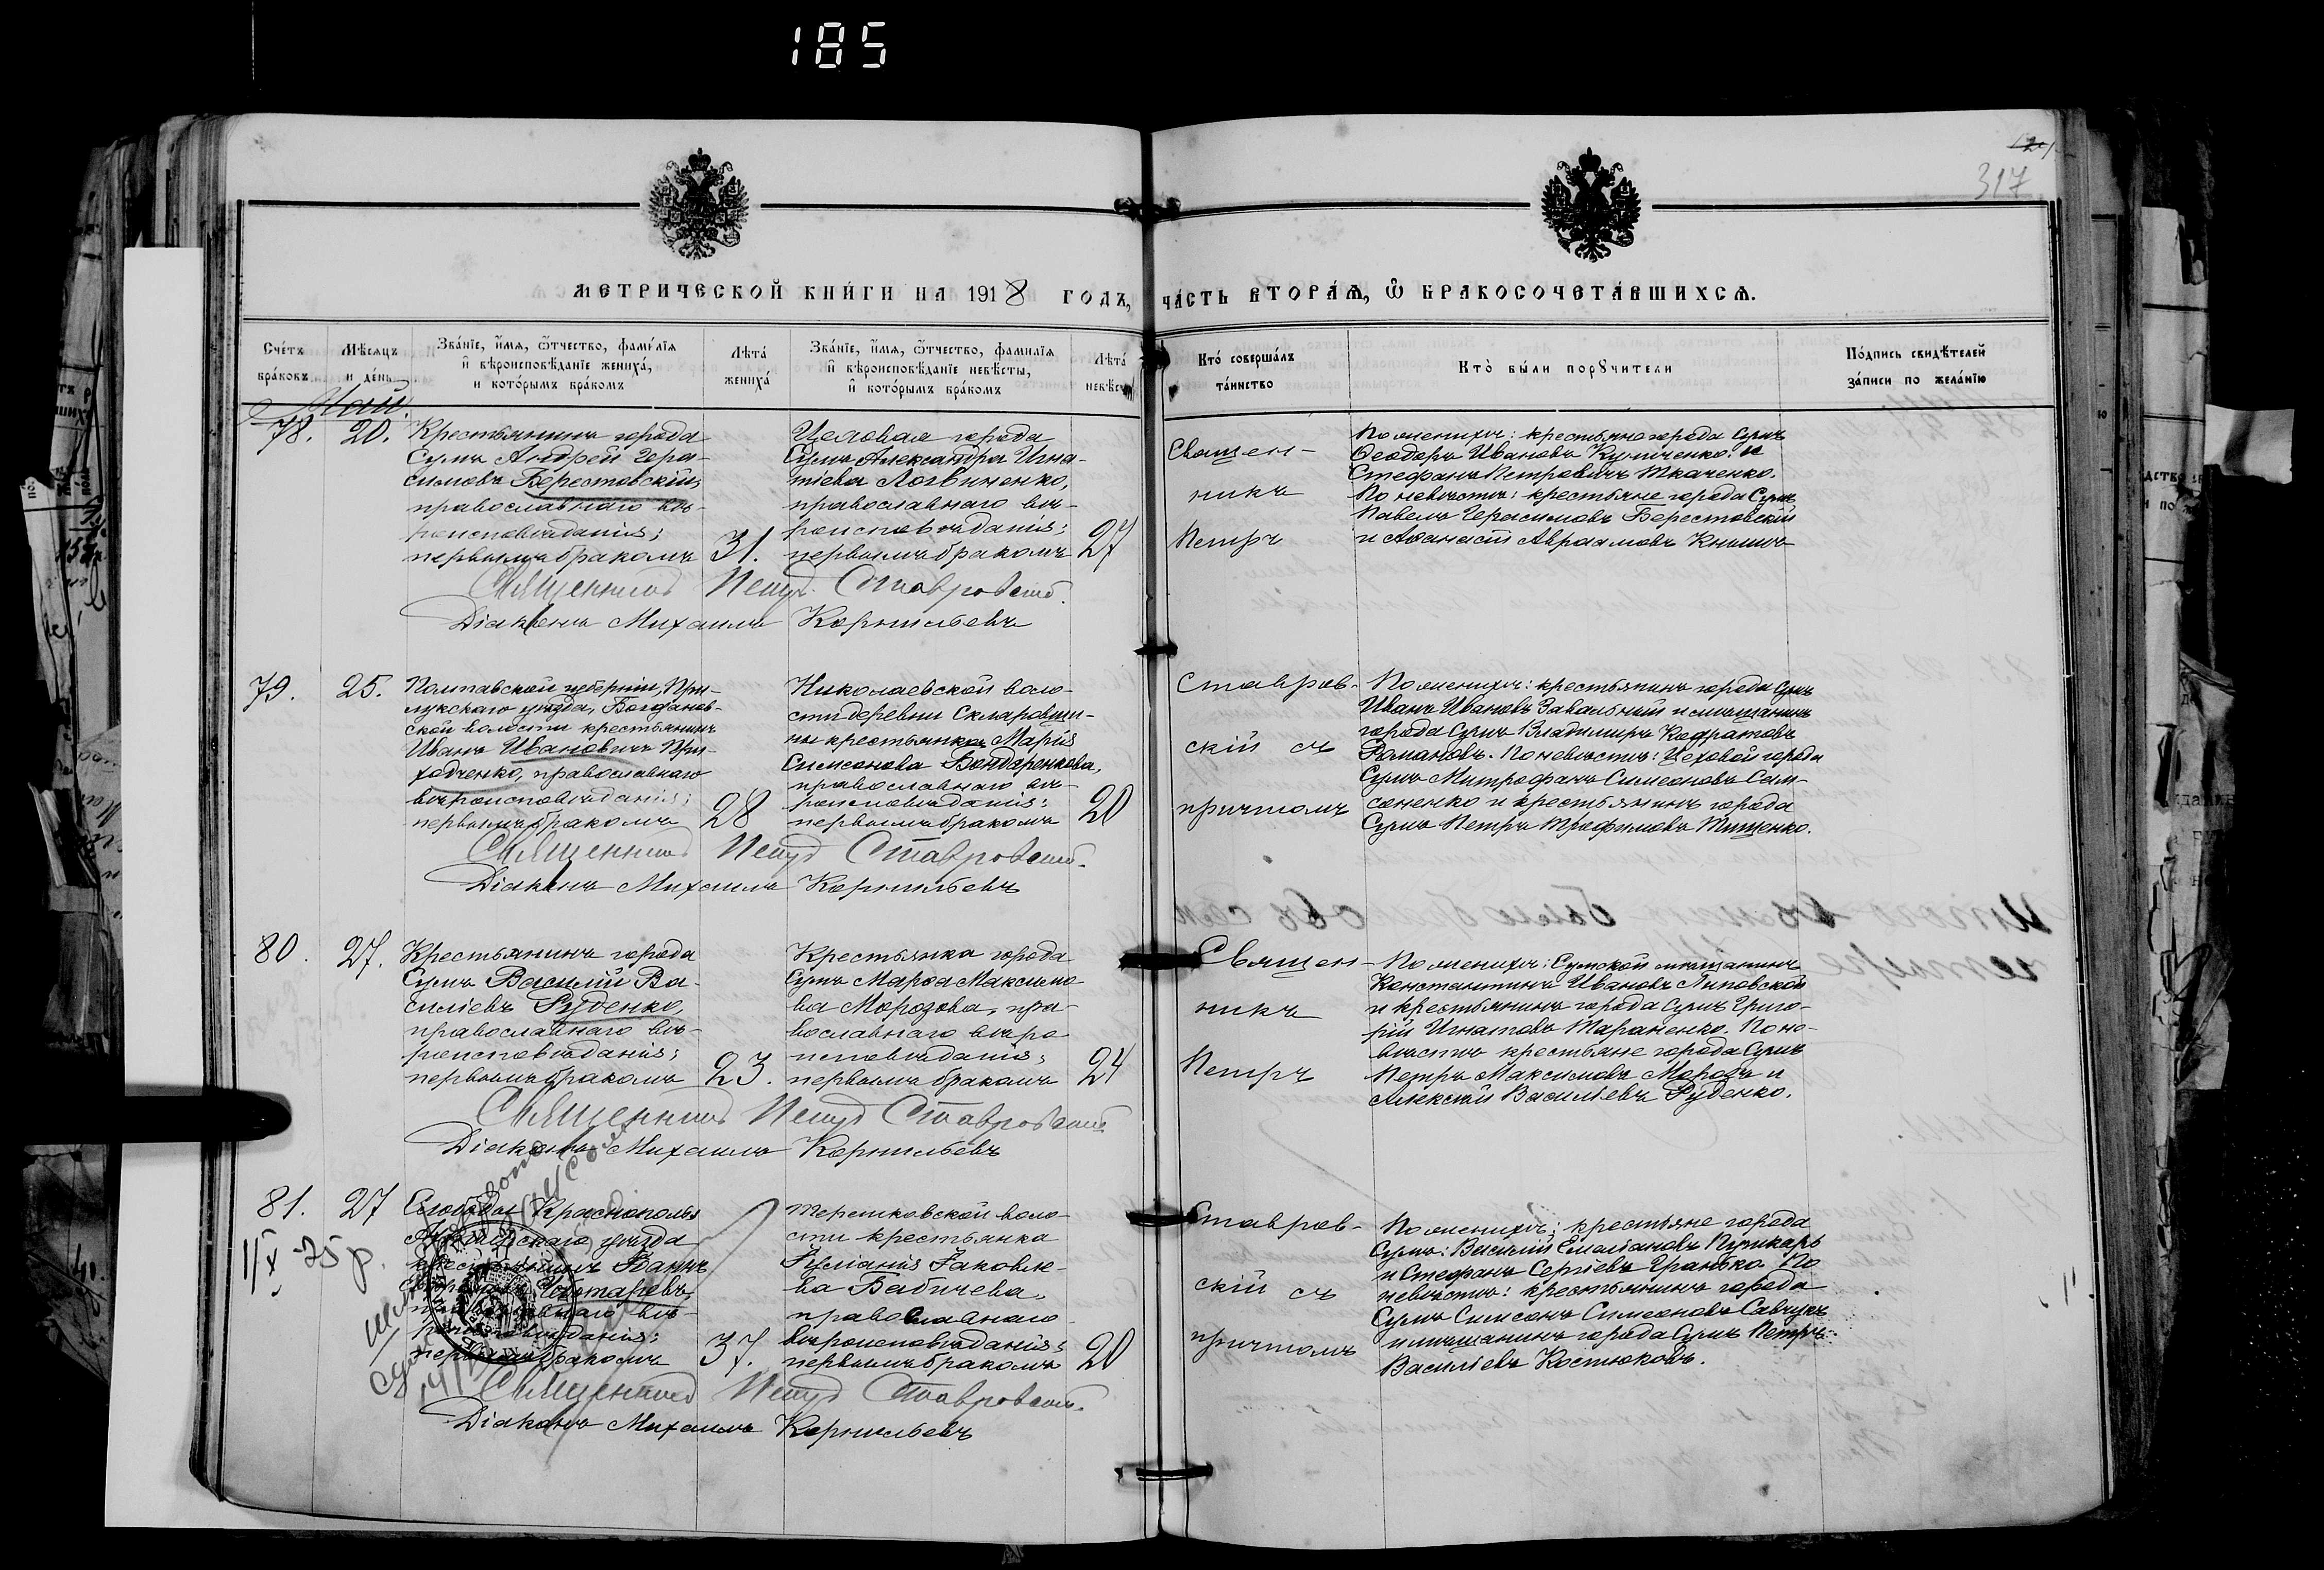 185
317
МЕТРИЧЕСКОЙ КНИГИ НА 1918 ГОДЪ,
ЧАСТЬ ВТОРАЯ, Ѡ БРАКОСОЧЕТАВШИХСЯ.
Счетъ браковъ.
Мѣсяцъ и день.
Званіе, имя, ѿчество, фамилія и вѣроисповѣданіе жениха, и которымъ бракомъ
Лѣта жениха
Званіе, имя, ѿчество, фамилія и вѣроисповѣданіе невѣсты, и которымъ бракомъ
Лѣта невѣсты
Кто совершалъ таинство
Кто были поручители
Подпись свидѣтелей записи по желанію
Май.
78.
20.
Крестьянинъ города
Сумъ Андрей Гера-
симовъ Берестовскій,
православнаго вѣ-
роисповѣданія;
первымъ бракомъ
31.
Цеховая города
Сумъ Александра Игна-
тіева Логвиненко,
православнаго вѣ-
роисповѣданія;
первымъ бракомъ
27
Священ-
никъ
Петръ
По женихѣ: крестьяне города Сумъ
Ѳеодоръ Ивановъ Купченко и
Стефанъ Петровичъ Ткаченко.
По невѣстѣ: крестьяне города Сумъ
Павелъ Герасимовъ Берестовскій
и Аѳанасій Авраамовъ Книшъ
Священникъ Петръ Ставровскій.
Діаконъ Михаилъ Корнильевъ
79.
25.
Полтавской губерніи, При-
лукскаго уѣзда, Богданов-
ской волости крестьянинъ
Иванъ Ивановичъ При-
ходченко, православнаго
вѣроисповѣданія;
первымъ бракомъ
28
Николаевской воло-
сти деревни Скляровщи-
ны крестьянка Марія
Симеонова Бондаренкова,
православнаго вѣ-
роисповѣданія;
первымъ бракомъ
20
Ставров-
скій съ
причтомъ
По женихѣ: крестьянинъ города Сумъ
Иванъ Ивановъ Завальный и мѣщанинъ
города Сумъ Владимиръ Кодратовъ
Романовъ. По невѣстѣ: Цеховой города
Сумъ Митрофанъ Симеоновъ Сам-
соненко и крестьянинъ города
Сумъ Петръ Трофимовъ Тищенко.
Священникъ Петръ Ставровскій.
Діаконъ Михаилъ Корнильевъ
80.
27.
Крестьянинъ города
Сумъ Василій Ва-
силіевъ Руденко,
православнаго вѣ-
роисповѣданія;
первымъ бракомъ
23.
Крестьянка города
Сумъ Марѳа Максимо-
ва Морозова, пра-
вославнаго вѣро-
исповѣданія;
первымъ бракомъ
24
Священ-
никъ
Петръ
По женихѣ: Сумской мѣщанинъ
Константинъ Ивановъ Липовской
и крестьянинъ города Сумъ Григо-
рій Игнатовъ Тараненко. По не-
вѣстѣ крестьяне города Сумъ
Петръ Максимовъ Морозъ и
Алексѣй Василіевъ Руденко.
Священникъ Петръ Ставровскій
Діаконъ Михаилъ Корнильевъ
81.
27
11/X-75 р.
Слободы Краснополья
уѣзда
крестьянинъ Іоаннъ
Чоботаревъ,
православнаго вѣ-
роисповѣданія;
первымъ бракомъ
37.
Терешковской воло-
сти крестьянка
Іуліанія Іаковле-
ва Бабичева,
православнаго
вѣроисповѣданія;
первымъ бракомъ
20
Ставров-
скій съ
причтомъ
По женихѣ: крестьяне города
Сумъ: Василій Емеліановъ Пушкарь
и Стефанъ Сергіевъ Гранько. По
невѣстѣ: крестьянинъ города
Сумъ Симеонъ Симеоновъ Савчукъ
и мѣщанинъ города Сумъ Петръ
Василіевъ Костюковъ.
Священникъ Петръ Ставровскій.
Діаконъ Михаилъ Корнильевъ